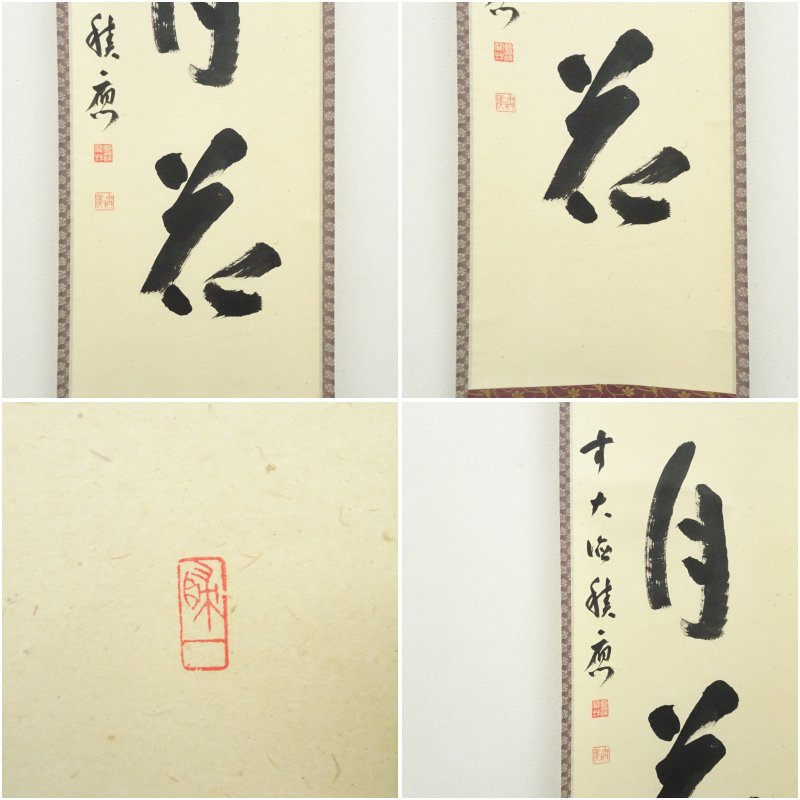 月花
積應
花
月花
前大徳積應